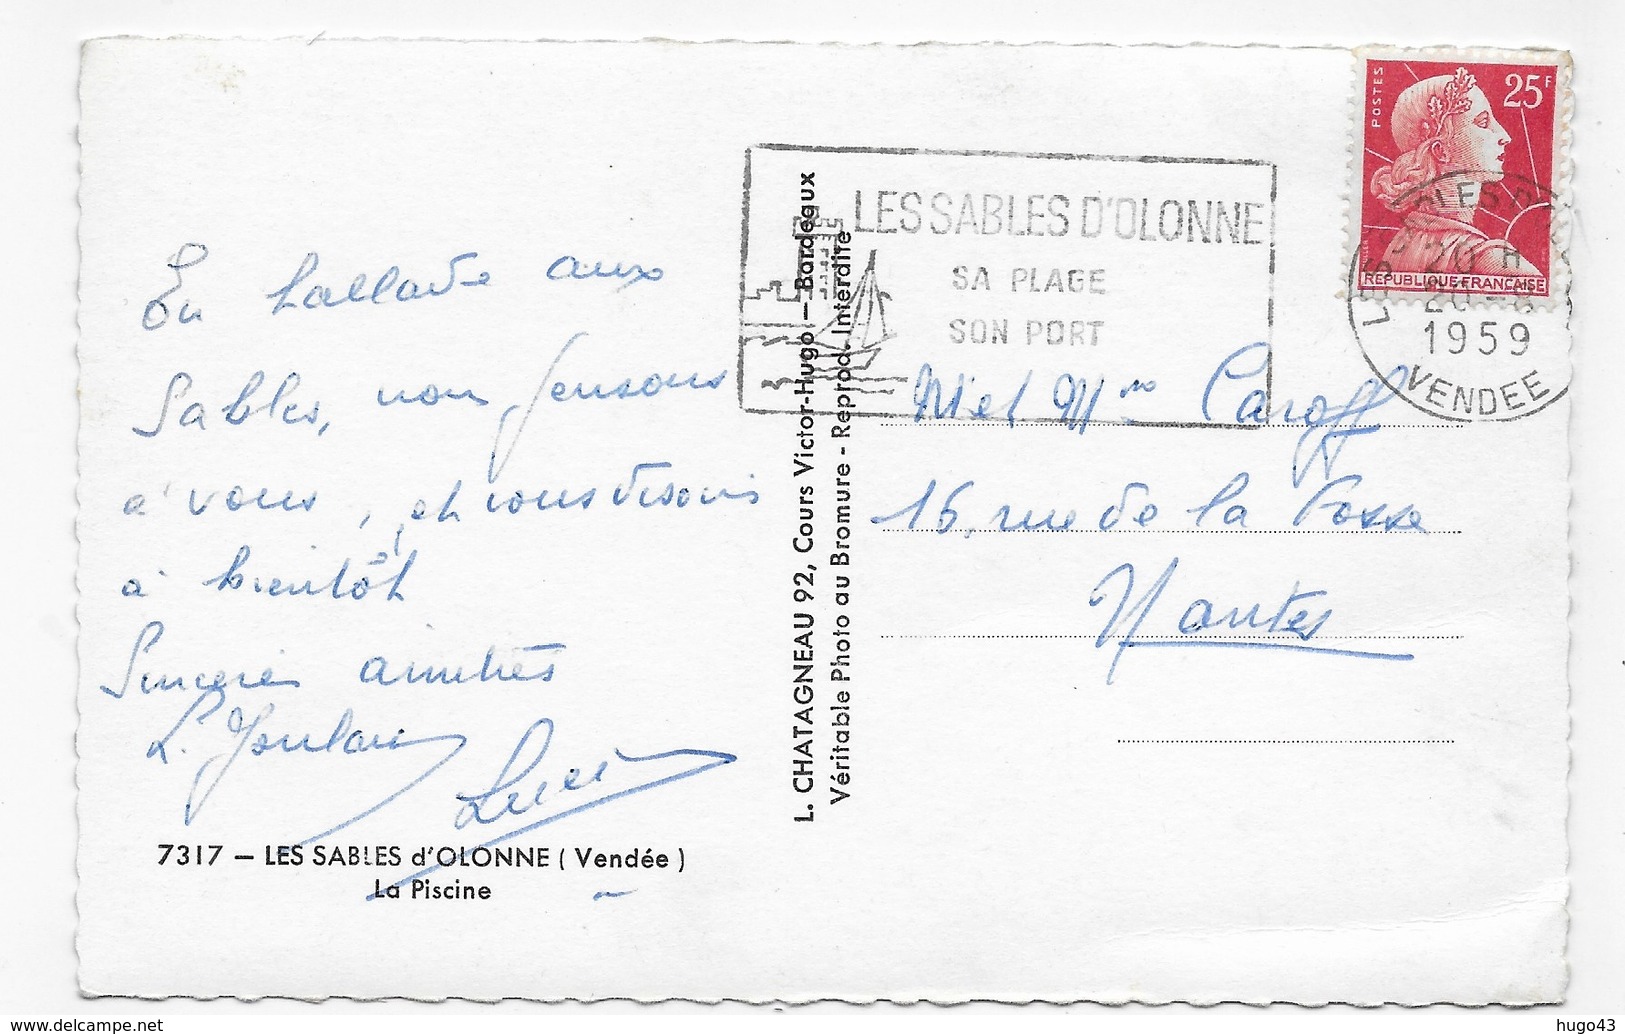 En ballade aux
Sables, nous pensons
à vous, et vous disons
à bientôt
Sincères amitiés
L.
7317 — LES SABLES d'OLONNE ( Vendée )
La Piscine
L. CHATAGNEAU 92, Cours Victor-Hugo — Bordeaux
Véritable Photo au Bromure - Reprod. Interdite
LES SABLES D'OLONNE
SA PLAGE
SON PORT
POSTES
25F
REPUBLIQUE FRANÇAISE
LES SABLES D'
20 H
1959
VENDEE
M et Mme Caroff
16, rue de la Fosse
Nantes
www.delcampe.net
hugo43